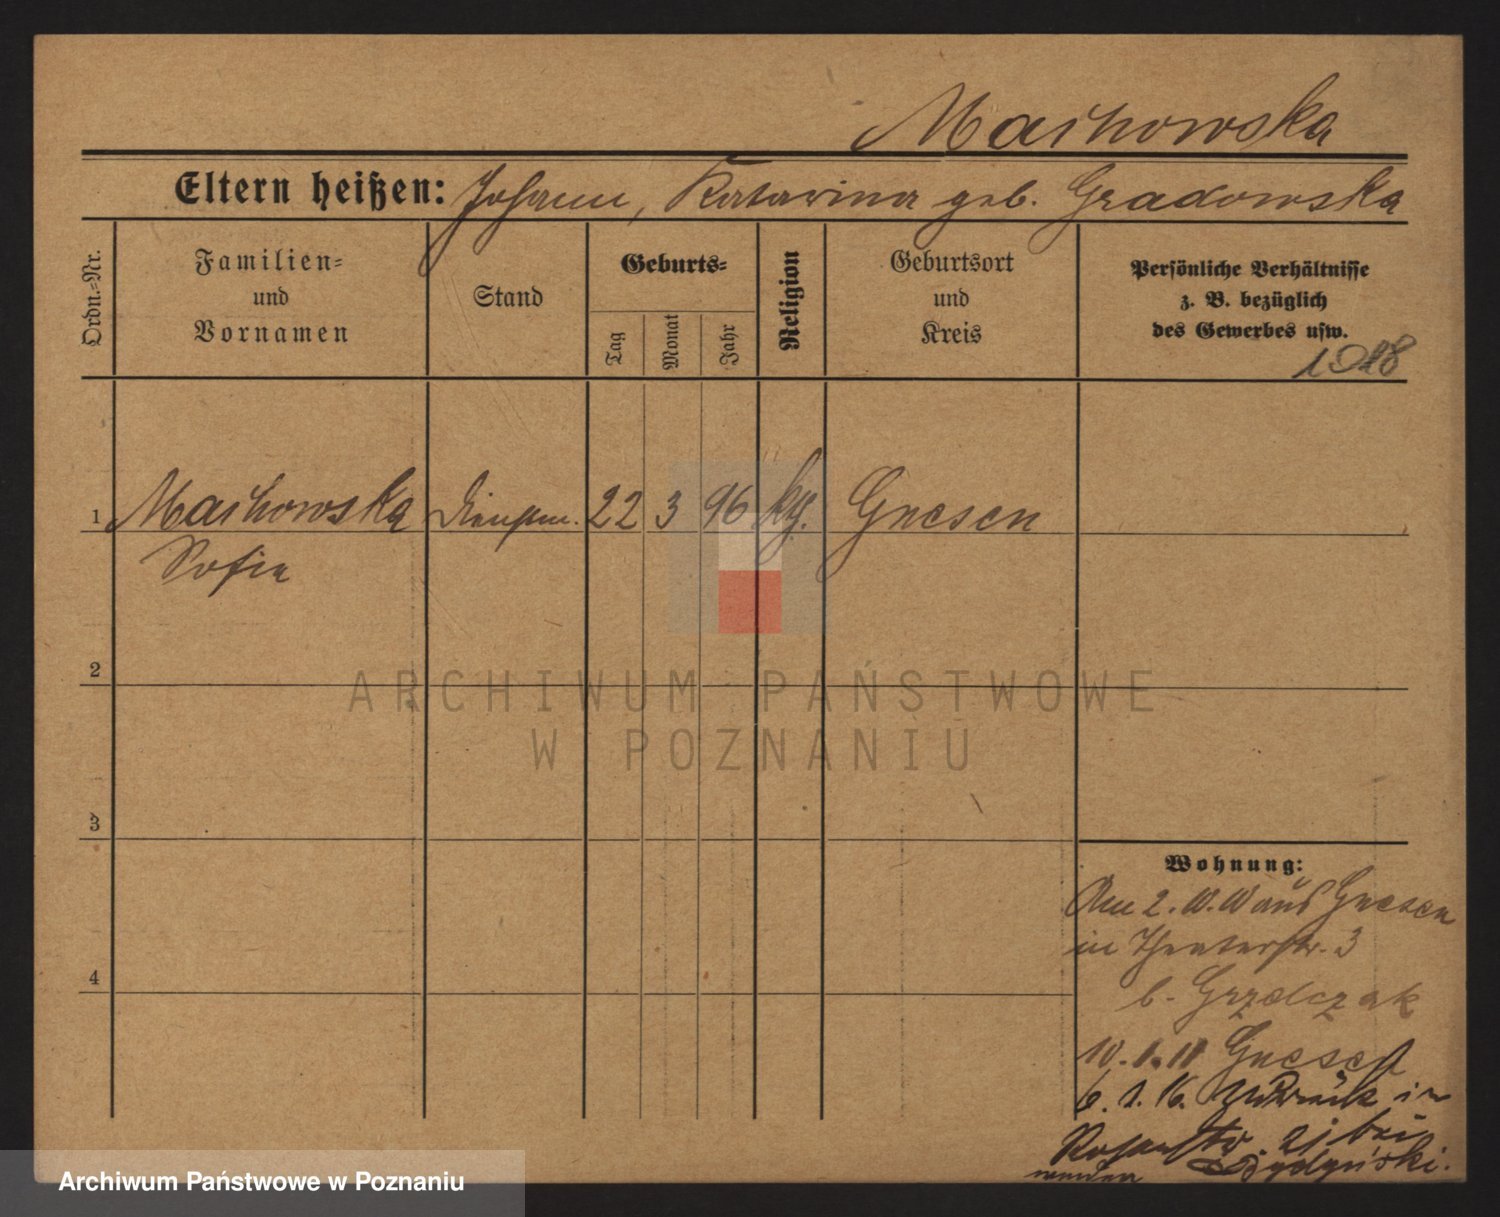 Machowska
Eltern heißen: Johann, Katarina geb. Gradowska
Ordn.-Nr.
Familien-
und
Vornamen
Stand
Geburts-
Tag
Monat
Jahr
Religion
Geburtsort
und
Kreis
Persönliche Verhältnisse
z. B. bezüglich
des Gewerbes usw.
1918
1 Machowska Dienstm. 22 3 96 kg. Gnesen
Sofie
2
3
4
Wohnung:
Am 2. aus Gnesen
in Theaterstr. 3
b. Grzelczak
Gnesen
6. 1. 16. zurück in
21 bei
ARCHIWUM PAŃSTWOWE
W POZNANIU
Archiwum Państwowe w Poznaniu